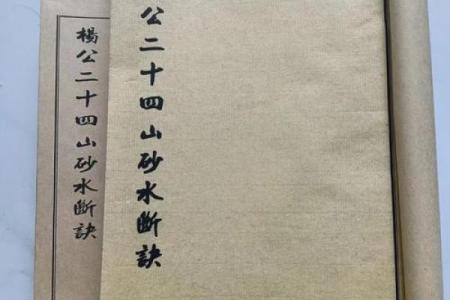 公二十四山砂水斷訣
楊公二十四山砂水斷訣